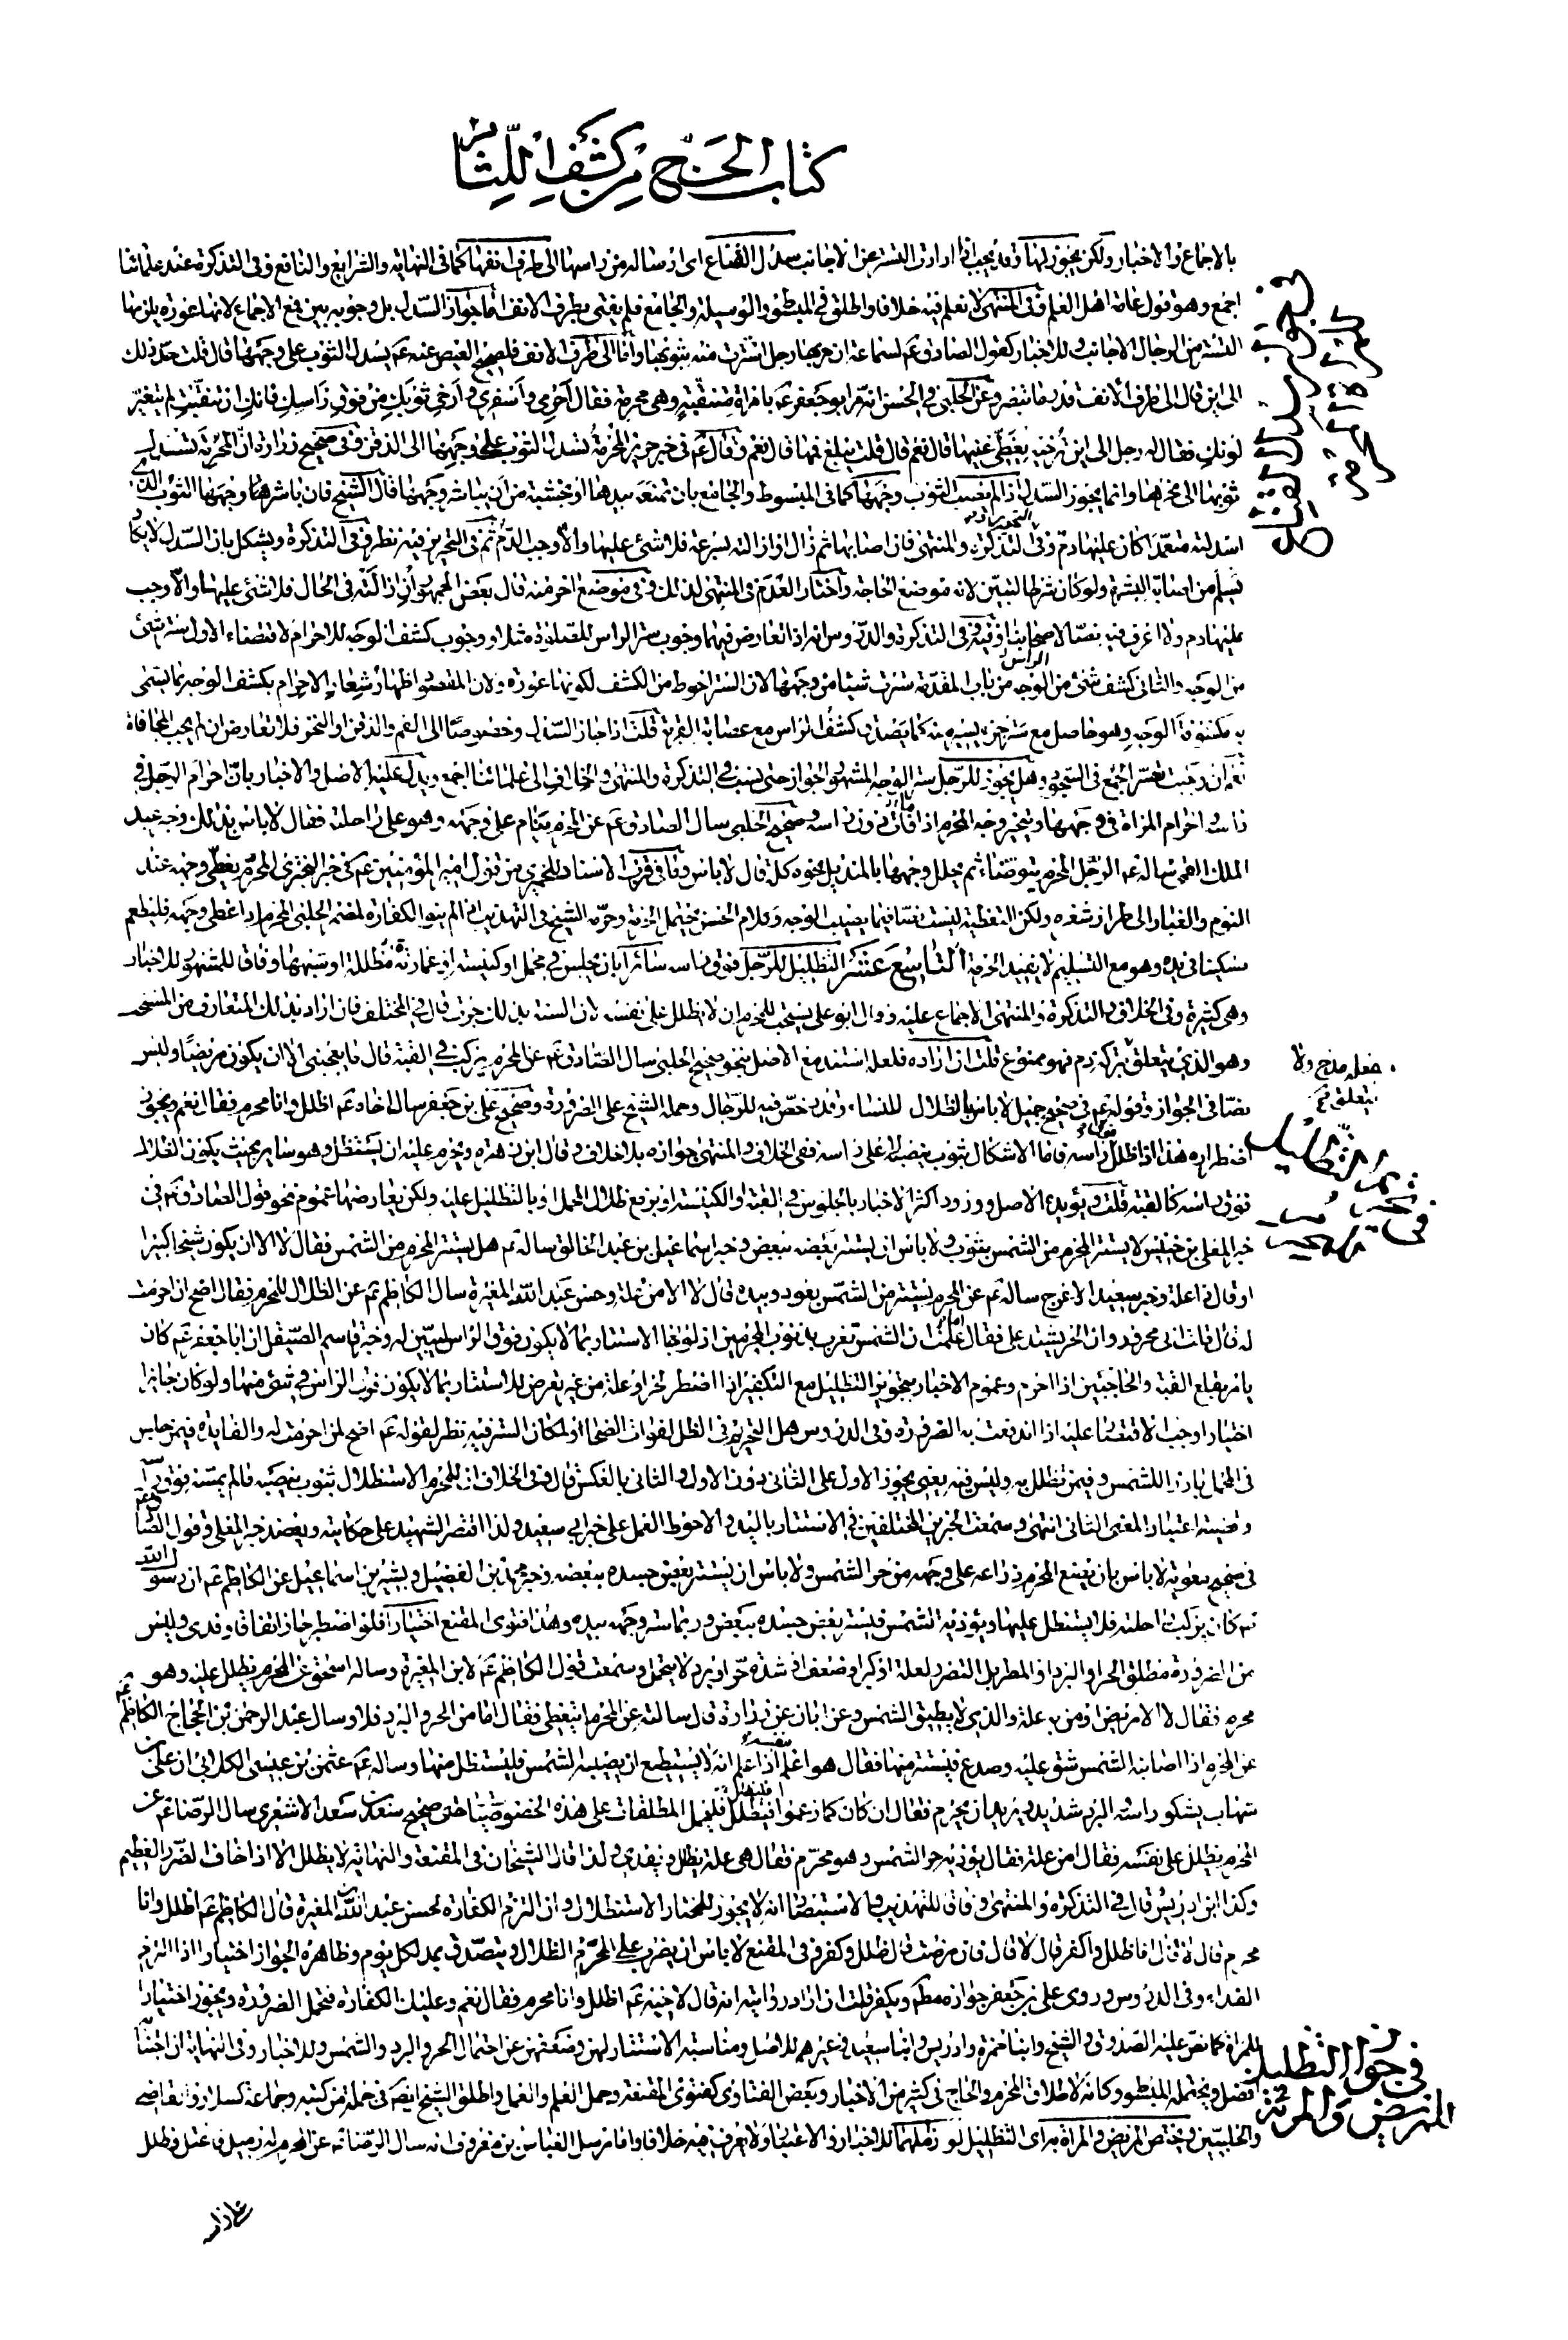 كتاب الحج من كشف اللثام
بالاجماع والاخبار ولكن يجوز لها وقد يجب اذا ارادت التستر عن الاجانب سدل القناع اى ارساله من راسها الى طرف انفها كما فى النهاية والشرايع والنافع وفى التذكرة عند علمائنا
اجمع وهو قول عامة اهل العلم وفى المنتهى لا نعلم فيه خلافا واطلق فى المبسوط والوسيلة والجامع فلم يغى بطرف الانف اما جواز السدل بل وجوبه فبين فمع الاجماع لانها عورة يلزمها
التستر من الرجال الاجانب وللاخبار كقول الصادق ع لسماعة ان مر بها رجل استترت منه بثوبها واما الى طرف الانف فلصحيح العيص عنه ع يسدل الثوب على وجهها قال قلت حد ذلك
الى اين قال الى طرف الانف قدر ما تبصر وعن الحلبى فى الحسن انه مر ابو جعفر ع بامراة متنقبة وهى محرمة فقال احرمى واسفرى وارخى ثوبك من فوق راسك فانك ان تنقبت لم يتغير
لونك فقال له رجل الى اين ترخيه يغطى عينيها قال نعم قال قلت يبلغ فمها قال نعم وقال ع فى خبر حريز المحرمة تسدل الثوب على وجهها الى الذقن وفى صحيح زرارة ان المحرمة تسدل
ثوبها الى نحرها وانما يجوز السدل اذا لم يصب الثوب وجهها كما فى المبسوط والجامع بان تمنعه بيدها او خشبة من ان يباشر وجهها قال الشيخ فان باشرها وجهها الثوب الذى
اسدلته متعمدا كان عليها دم وفى التذكرة والمنتهى فان اصابها ثم زال او ازالته بسرعة فلا شئ عليها والا وجب الدم ثم فى التحرير فيه نظر وفى التذكرة ويشكل بان السدل لا يكاد
تسلم من اصابة البشرة ولو كان شرطا لتبين لانه موضع الحاجة واختار العدم فى المنتهى لذلك وفى موضع اخر منه قال بعض الجمهور ان ازالته فى الحال فلا شئ عليها والا وجب
عليها دم ولا اعرف فيه نصا لاصحابنا وفيه وفى التذكرة والدروس انه اذا تعارض فيهما وجوب ستر الراس للصلوة مثلا ووجوب كشف الوجه للاحرام لاقتضاء الاول ستر شئ
من الوجه والثانى كشف شئ من الراس من باب المقدمة سترت شيئا من وجهها لان الستر احوط من الكشف لكونها عورة ولان المقصود اظهار شعار الاحرام بكشف الوجه بما يسمى
به مكشوفة الوجه وهو حاصل مع ستر جزء يسير منه كما يصدق كشف الراس مع عصابة القربة قلت اذا جاز السدل وخصوصا الى الفم والذقن والنحر فلا تعارض ان لم يجب المجافاة
نعم ان وجبت تعسر الجمع فى السجود وهل يجوز للرجل ستر الوجه المشهور الجواز حتى نسب فى التذكرة والمنتهى والخلاف الى علمائنا اجمع ويدل عليه الاصل والاخبار بان احرام الرجل فى
راسه واحرام المراة فى وجهها وبتخمير وجه المحرم اذا مات دون راسه وصحيح الحلبى سال الصادق ع عن المحرم ينام على وجهه وهو على راحلته فقال لا باس بذلك وخبر عبد
الملك القمى ساله ع الرجل المحرم يتوضا ثم يخلل وجهه بالمنديل يخمره كله قال لا باس وما فى قرب الاسناد للحميرى من قول امير المؤمنين ع كما فى خبر البخترى المحرم يغطى وجهه عند
النوم والغبار الى طرار شعره ولكن التغطية ليست نصا فيما يصيب الوجه وكلام الحسن يحتمل الحرمة وحرمه الشيخ فى التهذيب اذا لم ينو الكفارة لمضمر الحلبى المحرم اذا غطى وجهه فليطعم
مسكينا فى يده وهو مع التسليم لا يفيد الحرمة التاسع عشر التظليل للرجل فوق راسه سائرا بان يجلس فى محمل او كنيسة او عمارية مظللة او شبهها وفاقا للمشهور للاخبار
وهى كثيرة وفى الخلاف والتذكرة والمنتهى الاجماع عليه وقال ابو على يستحب للمحرم ان لا يظلل على نفسه لان السنة بذلك جرت قال فى المختلف فان اراد بذلك المتعارف من المستحب
وهو الذى يتعلق بتركه ذم فهو ممنوع قلت ان اراده فلعله استند مع الاصل بنحو صحيح الحلبى سال الصادق ع عن المحرم يركب فى القبة قال ما يعجبنى الا ان يكون مريضا وليس
نصا فى الجواز وقوله ع فى صحيح جميل لا باس بالظلال للنساء وقد رخص فيه للرجال وحمله الشيخ على الضرورة وصحيح على بن جعفر سال اخاه ع اظلل وانا محرم فقال نعم ويجوز
اضطراره هذا اذا ظلل راسه فاما الاشكال بثوب ينصبه لا على راسه ففى الخلاف والمنتهى جوازه بلا خلاف وقال ابن زهرة ويحرم عليه ان يستظل وهو ساير بحيث يكون الظلال
فوق راسه كالقبة قلت ويؤيده الاصل وورود اكثر الاخبار بالجلوس فى القبة او الكنيسة او برفع ظلال المحمل او بالتظليل عليه ولكن يعارضها عموم نحو قول الصادق ع فى
خبر المعلى بن خنيس لا يستتر المحرم من الشمس بثوب ولا باس ان يستتر بعضه ببعض وخبر اسماعيل بن عبد الخالق ساله ع هل يستتر المحرم من الشمس فقال لا الا ان يكون شيخا كبيرا
او قال ذا علة وخبر سعيد الاعرج ساله ع عن المحرم يستتر من الشمس بعود وبيده قال لا الا من علة وحسن عبد الله بن المغيرة سال الكاظم ع عن الظلال للمحرم فقال اضح لمن احرمت
له قال فقلت انى محرور وان الحر يشتد على فقال اما علمت ان الشمس تغرب بذنوب المجرمين اذ لو نوى الاستتار بما لا يكون فوق الراس لبين له وخبر قاسم الصيقل ان ابا جعفر ع كان
يامر بقلع القبة والحاجبين اذا احرم وعموم الاخبار بتجويز التظليل مع التكفير اذا اضطر لحر او علة من غير تعرض للاستتار بما لا يكون فوق الراس فى شئ منها ولو كان جايزا
اختيارا وجب الاقتصار عليه اذا اندفعت به الضرورة وفى الدروس هل التحريم فى الظل لفوات الضحا او لمكان الستر فيه نظر لقوله ع اضح لمن احرمت له والفايدة فيمن جلس
فى المحمل بارزا للشمس وفيمن تظلل به وليس فيه يعنى يجوز الاول على الثانى دون الاول والثانى بالعكس قال وفى الخلاف ان للمحرم الاستظلال بثوب ينصبه ما لم يمسه فوق راسه
وقضيته اعتبار المعنى الثانى انتهى وسمعت الخبرين المختلفين فى الاستتار باليد والاحوط العمل على خبر ابى سعيد ولذا اقتصر الشهيد على حكايته ويعضد خبر المعلى وقول الصادق ع
فى صحيح معوية لا باس بان يضع المحرم ذراعه على وجهه من حر الشمس ولا باس ان يستتر بعض جسده ببعضه وخبر محمد بن الفضيل وبشير بن اسماعيل عن الكاظم ع ان رسول الله
ص كان يركب راحلته فلا يستظل عليها وتؤذيه الشمس فيستر بعض جسده ببعض وربما ستر وجهه بيده وهذا فتوى المقنع اختيارا فلو اضطر جاز اتفاقا وفدى وليس
من الضرورة مطلق الحر والبرد والمطر بل التضرر لعلة او كبر او ضعف او شدة حر او برد لا يتحمل وسمعت قول الكاظم ع لابن المغيرة وساله اسحق عن المحرم يظلل عليه وهو
محرم فقال لا الا مريض او من به علة والذى لا يطيق الشمس وعن ابان عن زرارة قال سالته عن المحرم ايتغطى فقال اما من الحر والبرد فلا وسال عبد الرحمن بن الحجاج الكاظم ع
عن المحرم اذا اصابته الشمس شق عليه وصدع فيستتر منها فقال هو اعلم بنفسه اذا علم انه لا يستطيع ان يصيبه الشمس فليستظل منها وساله ع عثمن بن عيسى الكلابى ان على بن
شهاب يشكو راسه والبرد شديد ويريد ان يحرم فقال ان كان كما زعموا فليظلل فليحمل المطلقات على هذه الخصوصيات حتى صحيح سعد بن سعد الاشعرى سال الرضا ع عن
المحرم يظلل على نفسه فقال امن علة فقال يؤذيه حر الشمس وهو محرم فقال هى علة يظلل ويفدى ولذا قال الشيخان فى المقنعة والنهاية لا يظلل الا اذا خاف الضرر العظيم
وكذا ابن ادريس قال فى التذكرة والمنتهى وفاقا للتهذيب والاستبصار انه لا يجوز للمختار الاستظلال وان التزم الكفارة لحسن عبد الله بن المغيرة قال للكاظم ع اظلل وانا
محرم قال لا قال افاظلل واكفر قال لا قال فان مرضت قال ظلل وكفر وفى المقنع لا باس ان يضرب على المحرم الظلال ويتصدق بمد لكل يوم وظاهره الجواز اختيارا اذا التزم
الفداء وفى الدروس وروى على بن جعفر جوازه مطلقا ويكفر قلت ان اراد روايته انه قال لاخيه ع اظلل وانا محرم فقال نعم وعليك الكفارة فتحمل الضرورة ويجوز اختيارا
للمراة كما نص عليه الصدوق والشيخ وابنا حمزة وادريس وابنا سعيد وغيرهم للاصل ومناسبة الاستتار لهن وضعفهن عن احتمال الحر والبرد والشمس وللاخبار وفى النهاية ان اجتنابه
افضل ويحتمله المبسوط وكانه لاطلاق المحرم والحاج فى كثير من الاخبار وبعض الفتاوى كفتوى المقنعة وجمل العلم والعمل واطلق الشيخ ايضا فى جملة من كتبه وجماعة كسلار والقاضى
والحلبيين ويختص المريض والمراة به اى التظليل لو زاملهما للاخبار والاعتبار ولا يعرف فيه خلافا واما مرسل العباس بن معروف انه سال الرضا ع عن المحرم له زميل فاعتل فظلل
جعله مدح ولا
يتعلق ع
فى تحريم التظليل
للمحرم
فى جواز التظليل
للمريض والمراة